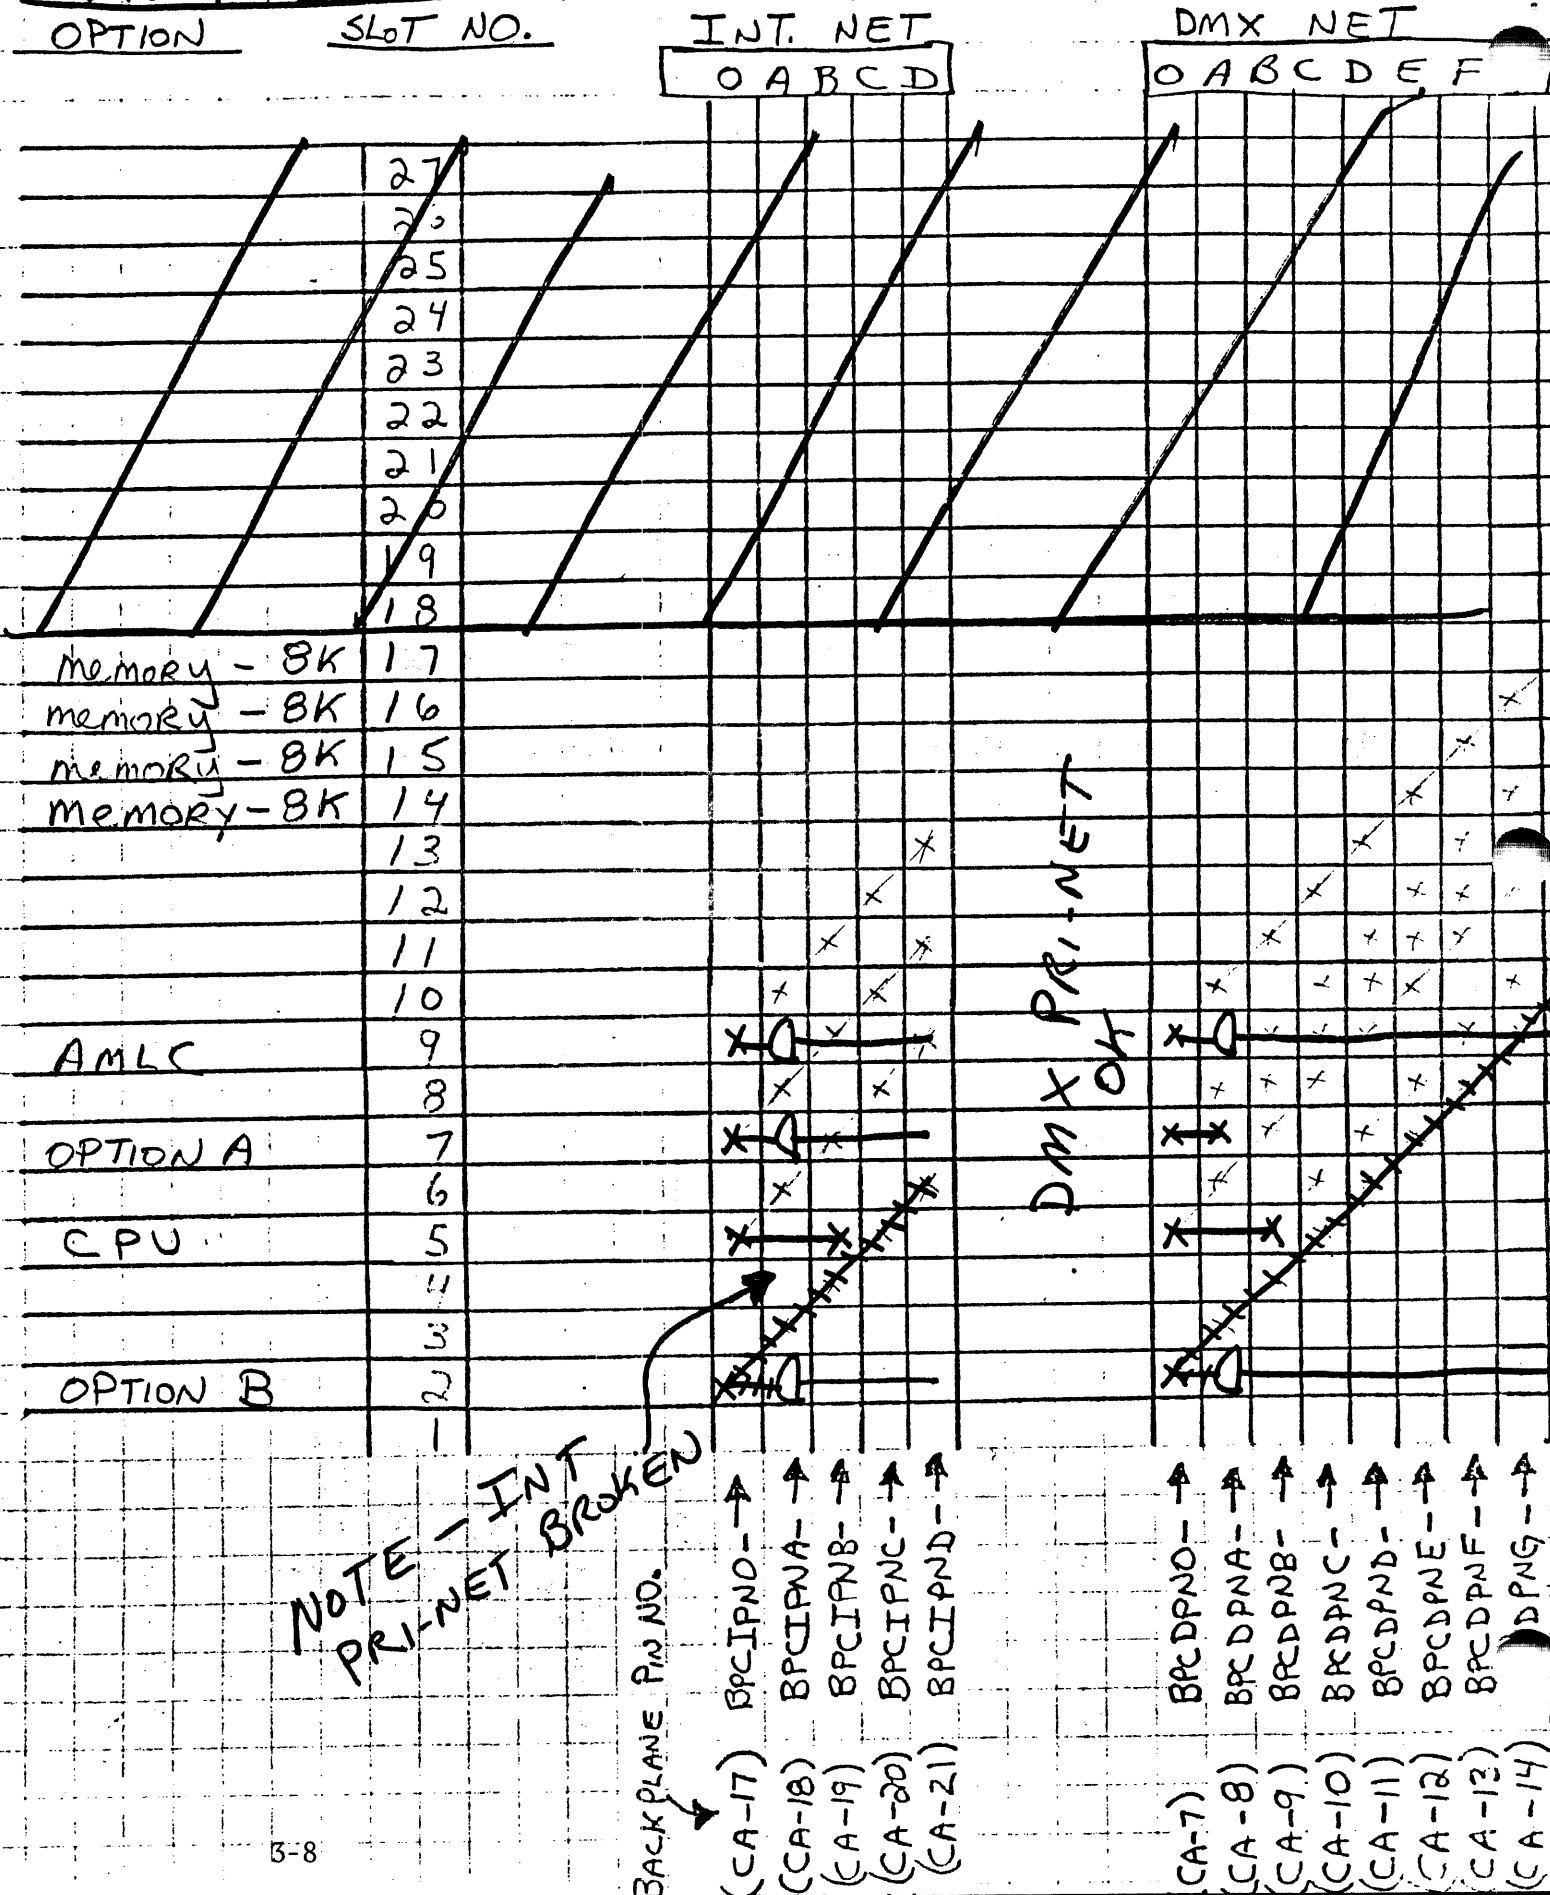 OPTION SLOT NO. INT. NET DMX NET
O A B C D O A B C D E F
27
25
24
23
22
21
20
19
18
memory - 8K 17
memory - 8K 16
memory - 8K 15
memory - 8K 14
13
12
11
10
AMLC 9
8
OPTION A 7
6
CPU 5
4
3
OPTION B 2
1
DMX PRI-NET
OK
NOTE - INT
PRI-NET BROKEN
BACKPLANE PIN NO.
(CA-17) BPCIPNO-
(CA-18) BPCIPNA-
(CA-19) BPCIPNB-
(CA-20) BPCIPNC-
(CA-21) BPCIPND-
(CA-7) BPCDPNO-
(CA-8) BPCDPNA-
(CA-9) BPCDPNB-
(CA-10) BPCDPNC-
(CA-11) BPCDPND-
(CA-12) BPCDPNE-
(CA-13) BPCDPNF-
(CA-14) DPNG-
3-8